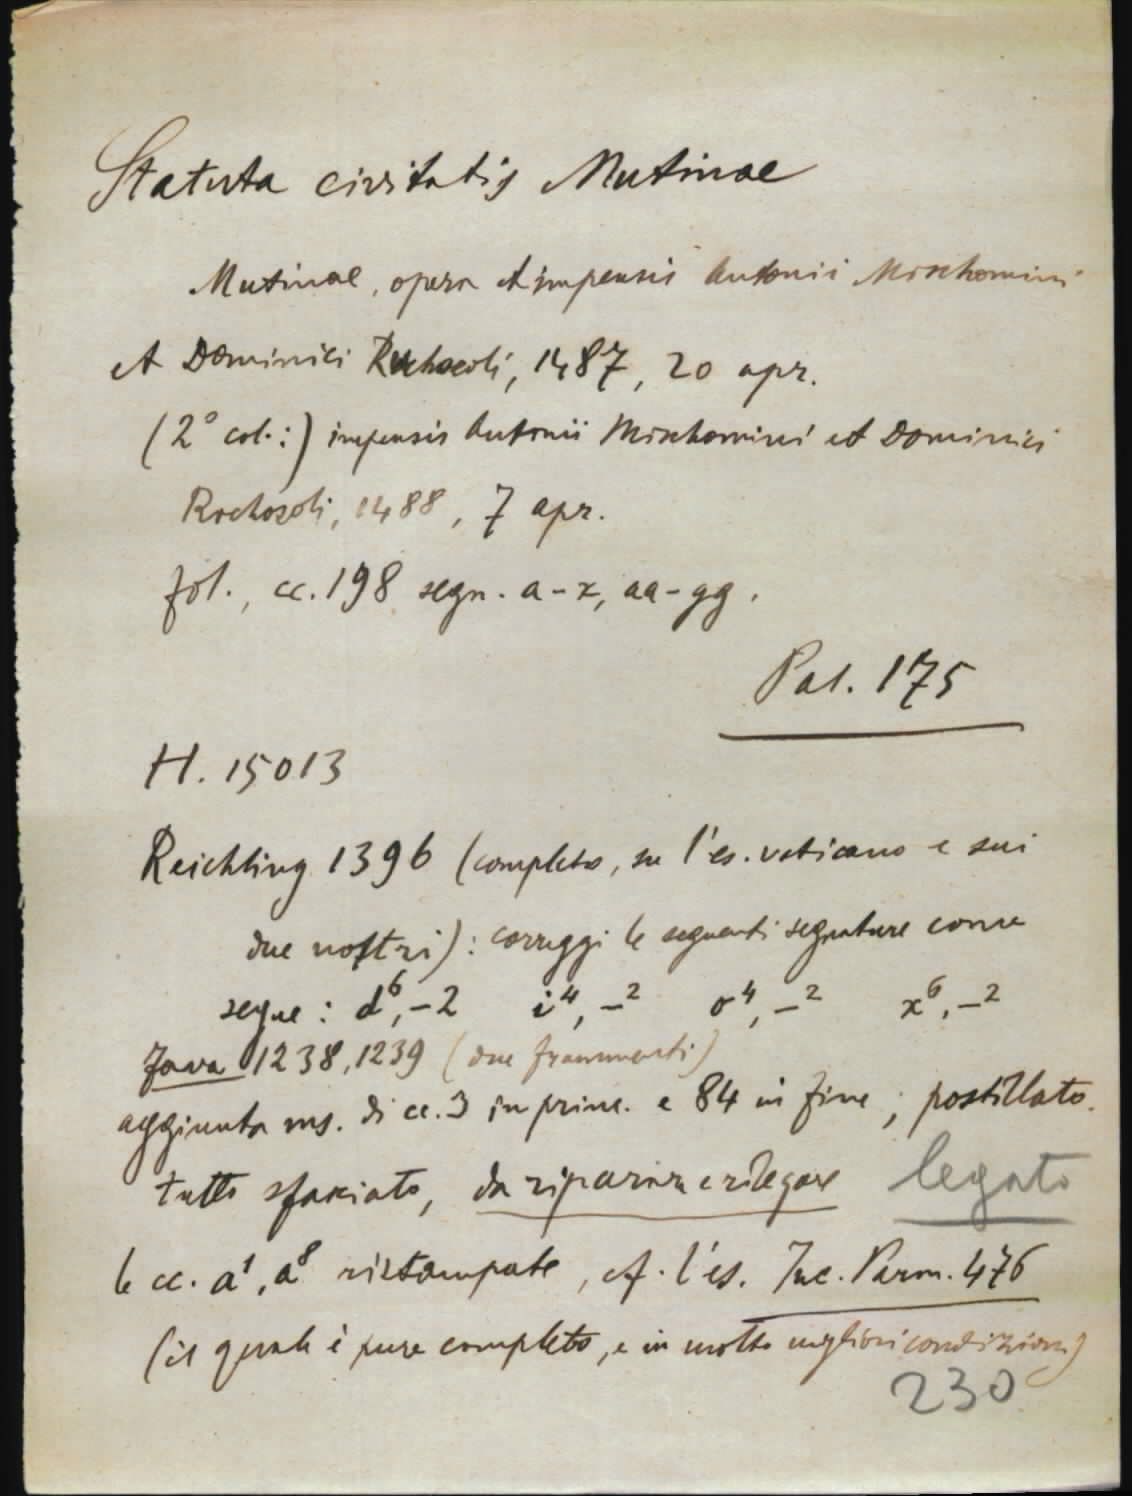 Statuta civitatis Mutinae
Mutinae, opera et impensis Antonii Mischomini
et Dominici Rochozoli, 1487, 20 apr.
(2° col.:) impensis Antonii Mischomini et Dominici
Rochozoli, 1488, 7 apr.
fol., cc. 198 segn. a-z, aa-gg.
Pal. 175
H. 15013
Reichling 1396 (completo, su l'es. vaticano e sui
due nostri): correggi le seguenti segnature come
segue: d⁶,-2 i⁴,-² o⁴,-² x⁶,-²
Fava 1238, 1239 (due frammenti)
aggiunta ms. di cc. 3 in princ. e 84 in fine; postillato.
tutto sfasciato, da riparare e rilegare legato
le cc. a¹, a⁸ ristampate, cf. l'es. Inc. Parm. 476
(il quale è pure completo, e in molto migliori condizioni)
230